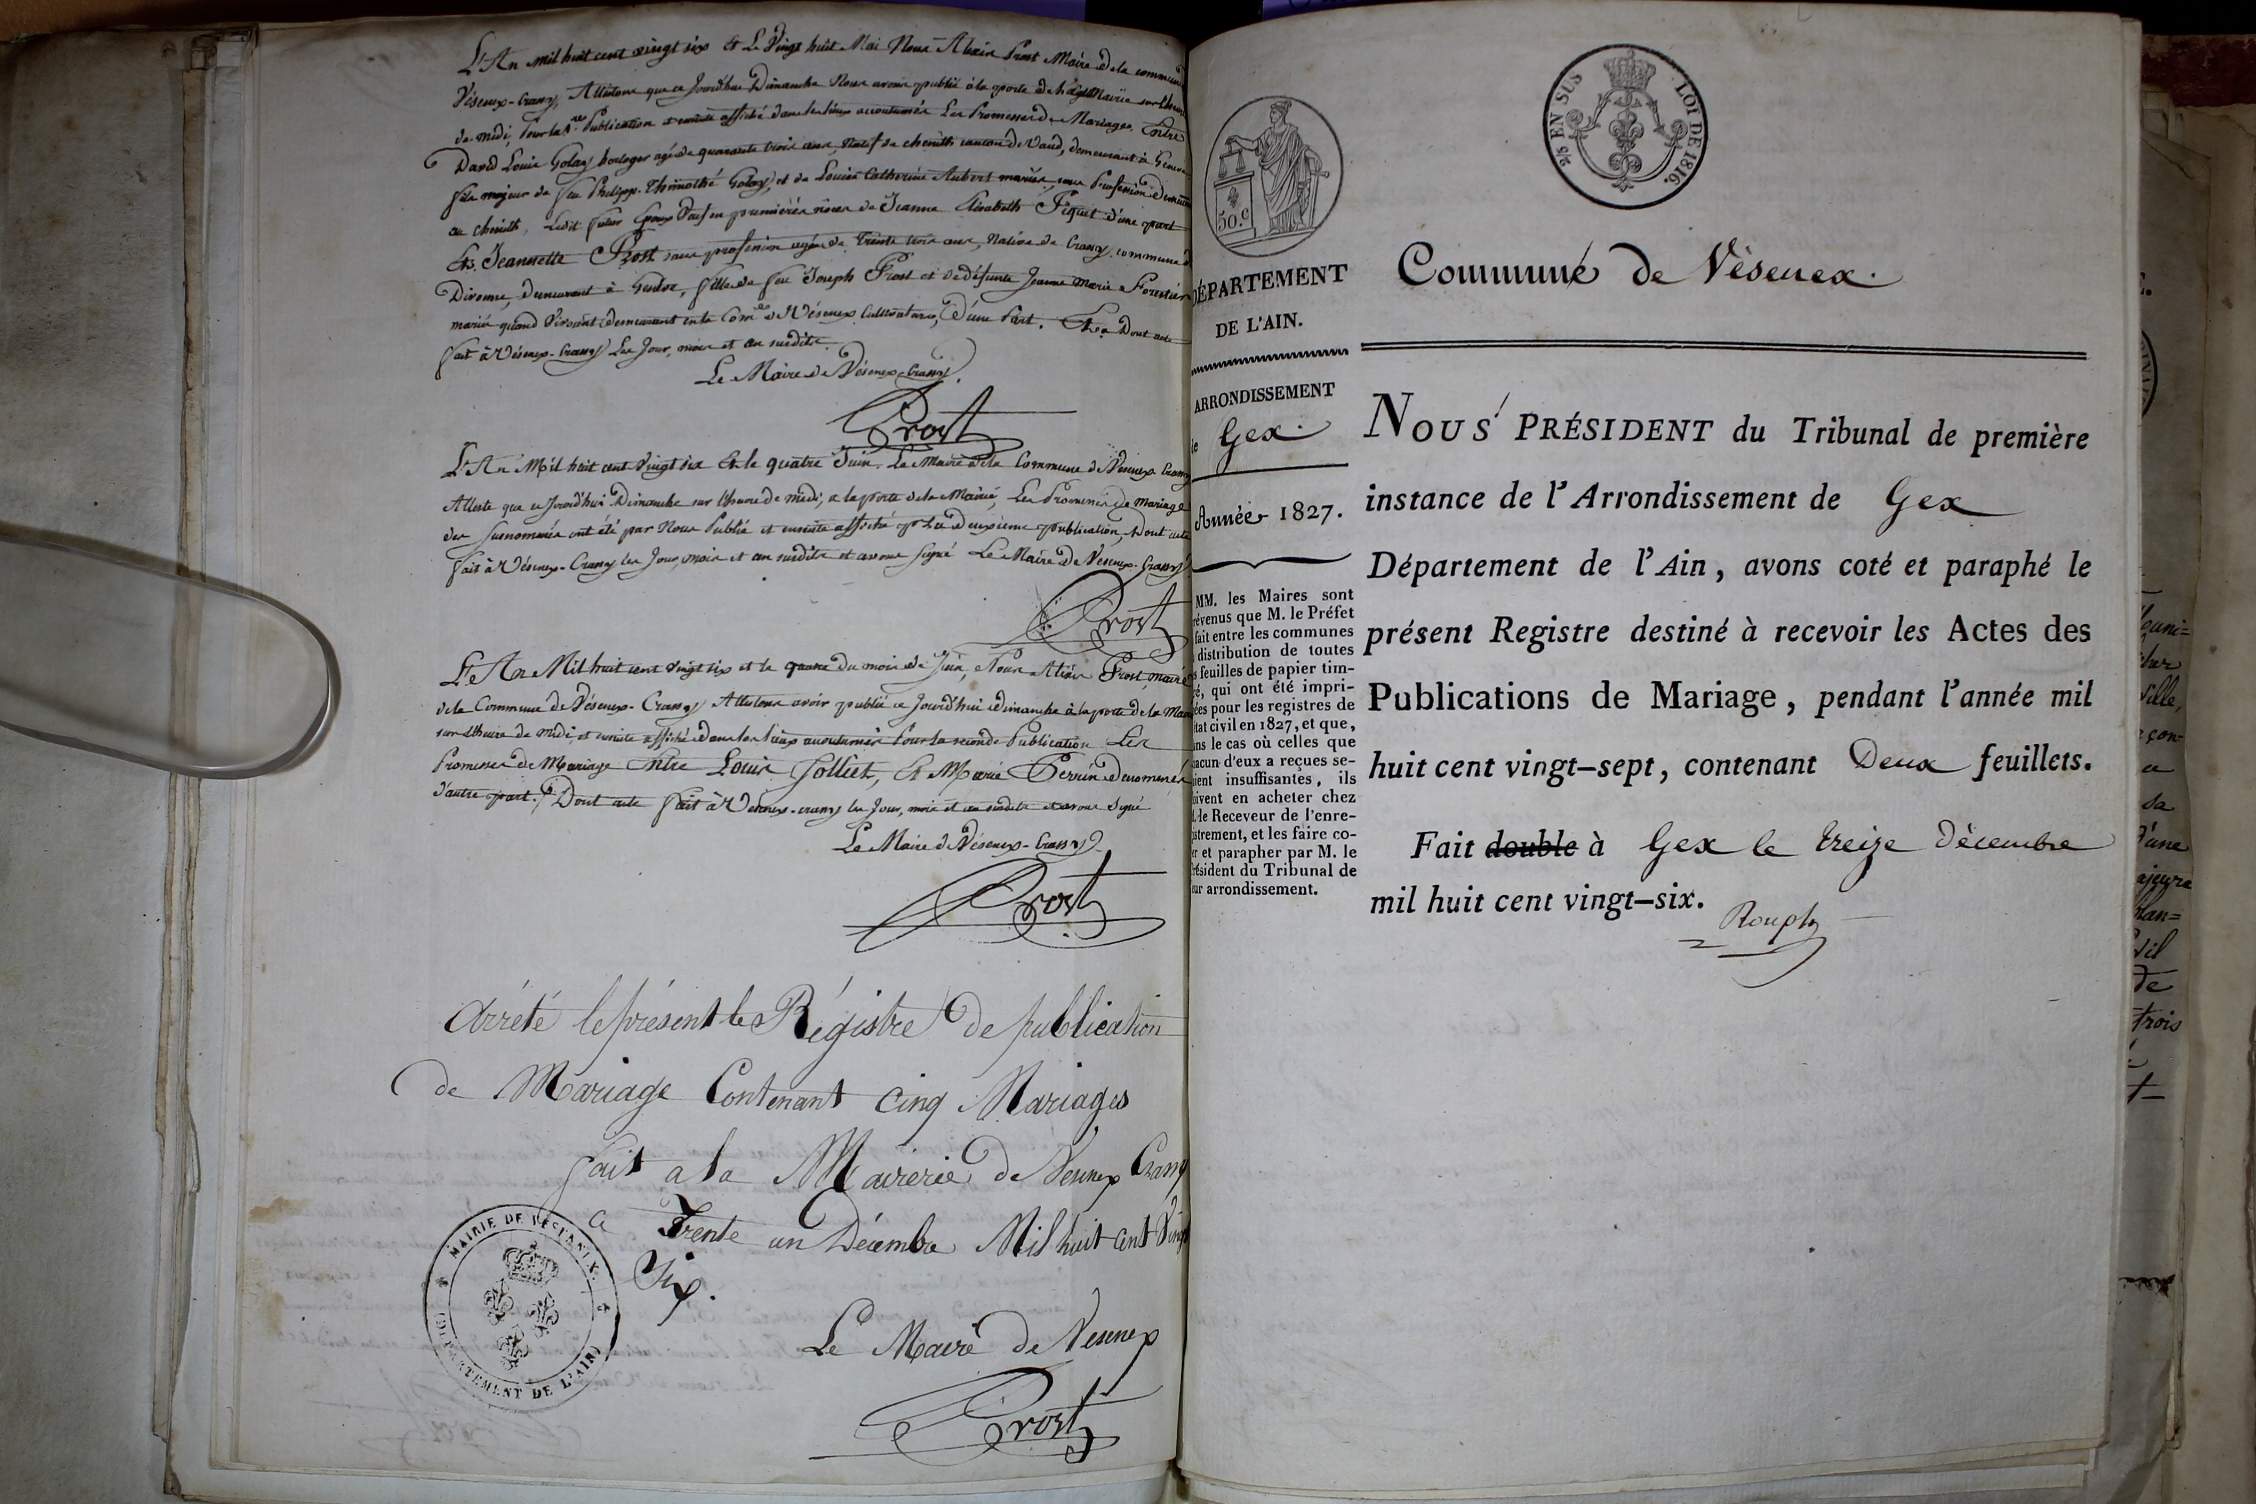 L'An mil huit cent vingt six et Le Vingt huit Mai Nous Alexis Prost Maire de la commune
Vésenex-Crassy, Attestons que ce Jourd'hui Dimanche Nous avons publié à la porte de la Mairie sur l'heure
de midi, Pour la 1re Publication et ensuite affiché dans les lieux accoutumés Les Promesses de Mariages Entre
David Louis Golay horloger agé de quarante trois ans, Natif de chenith canton de Vaud, demeurant à Genève
fils majeur de feu Philippe Thimothé Golay, et de Louise Catherine Aubert mariés, sans Profession demeurant
au chenith, Ledit futur Epoux Veuf en premières nôces de Jeanne Elisabeth Piguet d'une part
Et Jeannette Prost sans profession agée de Trente trois ans, Native de Crassy, commune d
Divonne, demeurant à Genève, fille de feu Joseph Prost et de défunte Jeanne Marie Forestier
mariés quand Vivoient demeurant en la Com.e de Vésenex Cultivateurs, d'une Part. Dont acte
fait à Vésenex-Crassy Les Jour, mois et an susdits.
Le Maire de Vésenex-Crassy.
Prost
L'An Mil huit cent Vingt six Et le quatre Juin, Le Maire de la Commune de Vésenex Crassy
Atteste que ce Jourd'hui Dimanche sur l'heure de midi, a la porte de la Mairie, Les Promesses de mariage
des Susnommés ont été par Nous Publié et ensuite affiché pr La Deuxième publication, Dont acte
fait à Vésenex-Crassy les Jour, mois et an susdits et avons signé Le Maire de Vésenex-Crassy
Prost
L'An Mil huit cent Vingt six et le quatre du mois de Juin, Nous Alexis Prost, maire
de la Commune de Vésenex-Crassy Attestons avoir publié ce Jourd'hui Dimanche à la porte de la Mairie
sur l'heure de midi, et ensuite affiché dans les lieux accoutumés Pour la seconde Publication Les
Promesses de Mariage Entre Louis Jolliet, Et Marie Perrin dénommés
d'autre part. Dont acte fait à Vésenex-crassy les Jour, mois et an susdits et avons signé
Le Maire de Vésenex-Crassy
Prost
Arrété le présent le Régistre de publication
de Mariage Contenant cinq Mariages
fait a la Mairerie de Vesenex Crassy
a Trente un Décembre Mil huit Cent Vingt
Six.
MAIRIE DE VESENEX.
DÉPARTEMENT DE L'AIN
Le Maire de Vesenex
Prost
50.C
2/5 EN SUS LOI DE 1816.
DÉPARTEMENT
DE L'AIN.
ARRONDISSEMENT
de Gex.
Année 1827.
MM. les Maires sont
révenus que M. le Préfet
fait entre les communes
distribution de toutes
s feuilles de papier tim-
é, qui ont été impri-
ées pour les registres de
état civil en 1827, et que,
ans le cas où celles que
acun d'eux a reçues se-
aient insuffisantes, ils
oivent en acheter chez
. le Receveur de l'enre-
istrement, et les faire co-
er et parapher par M. le
résident du Tribunal de
ur arrondissement.
Commune de Vésenex.
NOUS PRÉSIDENT du Tribunal de première
instance de l'Arrondissement de Gex
Département de l'Ain, avons coté et paraphé le
présent Registre destiné à recevoir les Actes des
Publications de Mariage, pendant l'année mil
huit cent vingt-sept, contenant Deux feuillets.
Fait double à Gex le treize Décembre
mil huit cent vingt-six.